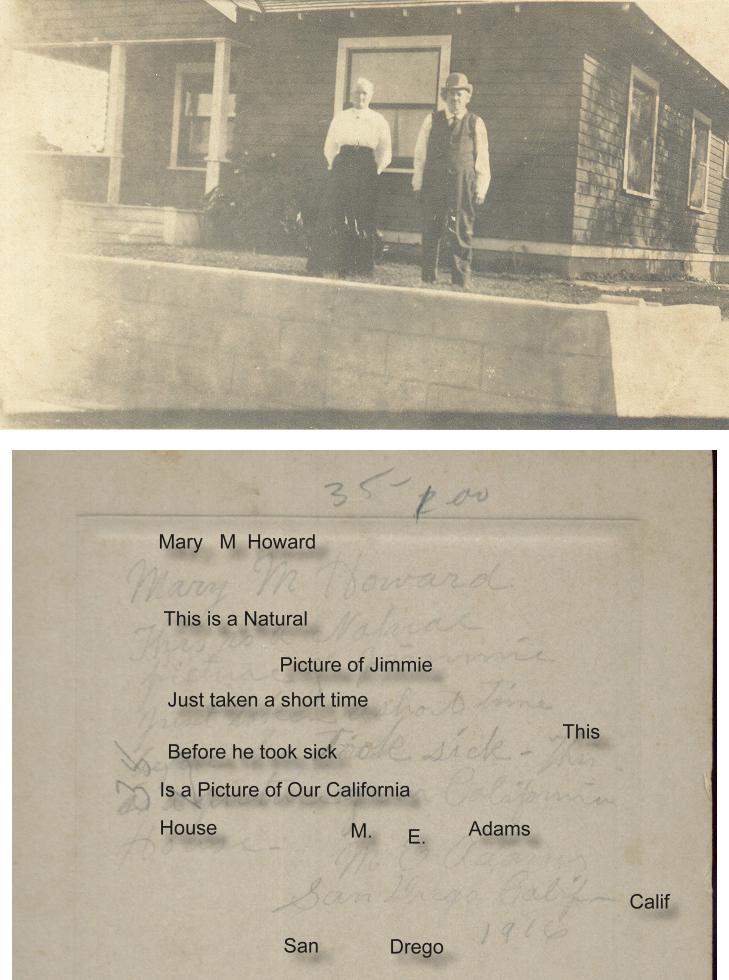 35 - 2.00
Mary M Howard
Mary M Howard
This is a Natural
This is a Natural
Picture of Jimmie
Picture of Jimmie
Just taken a short time
short time
This
Before he took sick
took sick - This
35
Is a Picture of Our California
California
House M. E. Adams
House
M E Adams
San Drego Calif
Calif
1916
San Drego